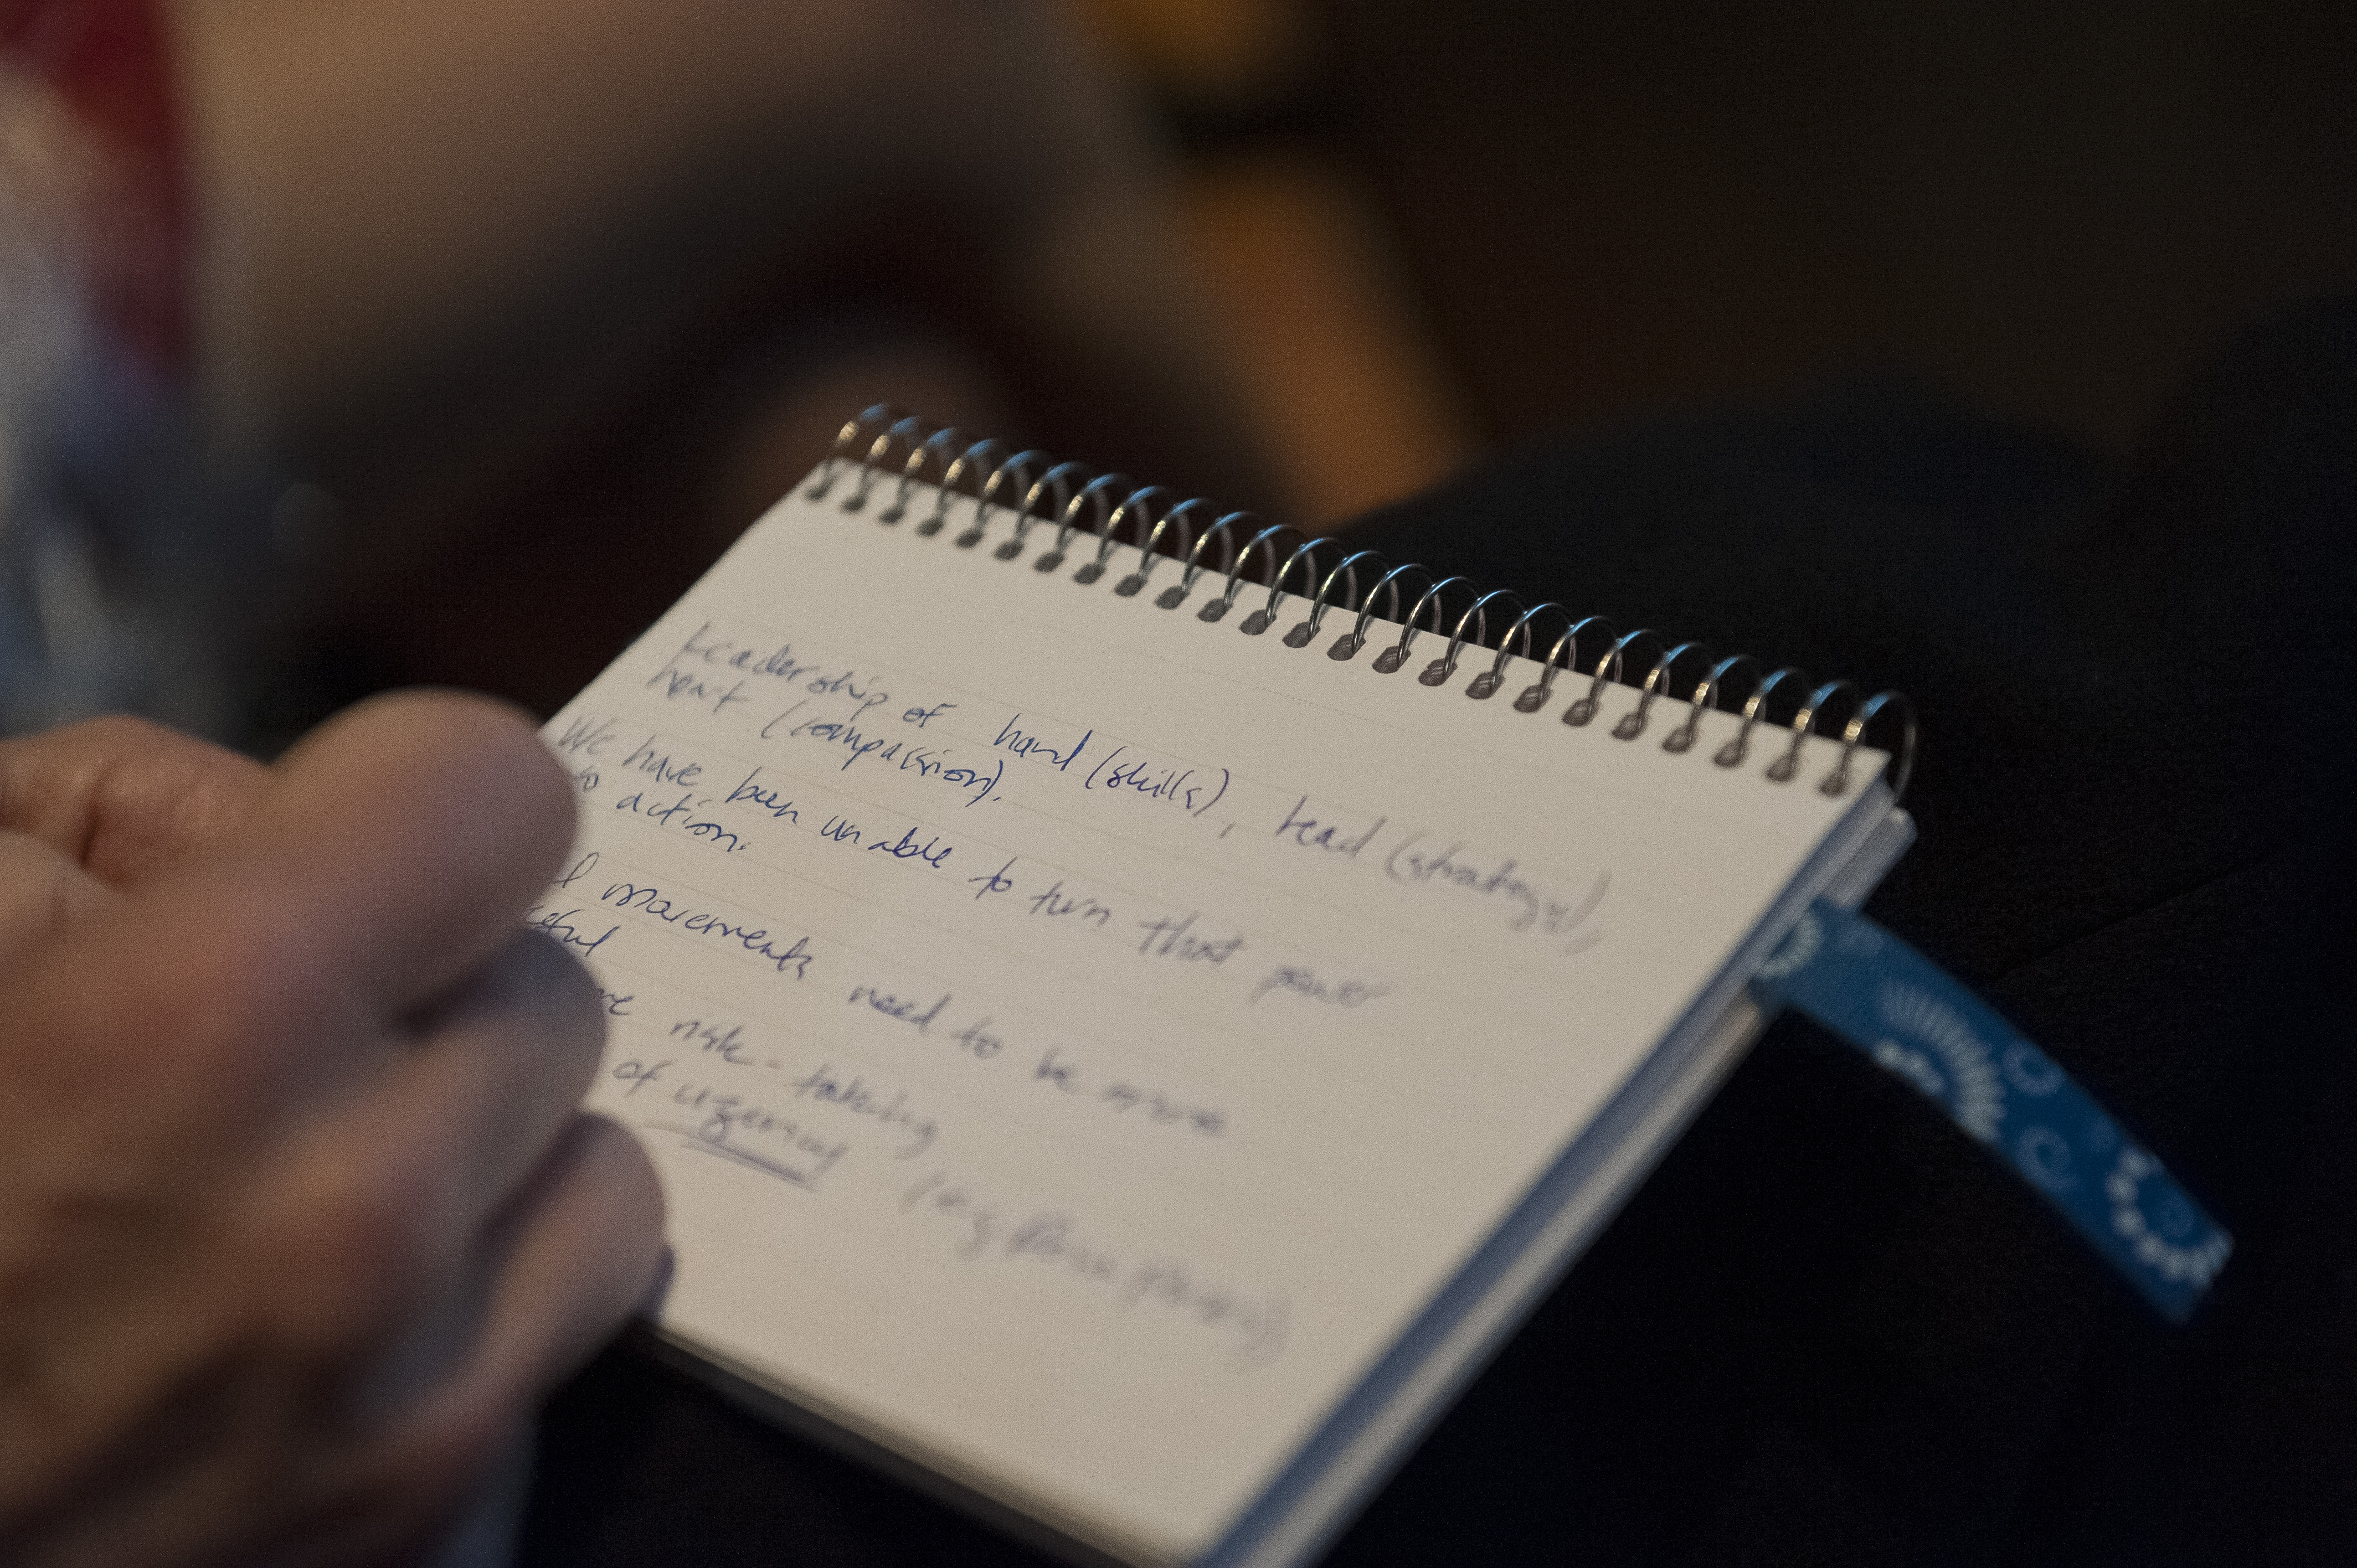 Leadership of hand (skills), head (strategy),
heart (compassion).
We have been unable to turn that power
to action.
movements need to be more
risk-taking
of urgency (eg